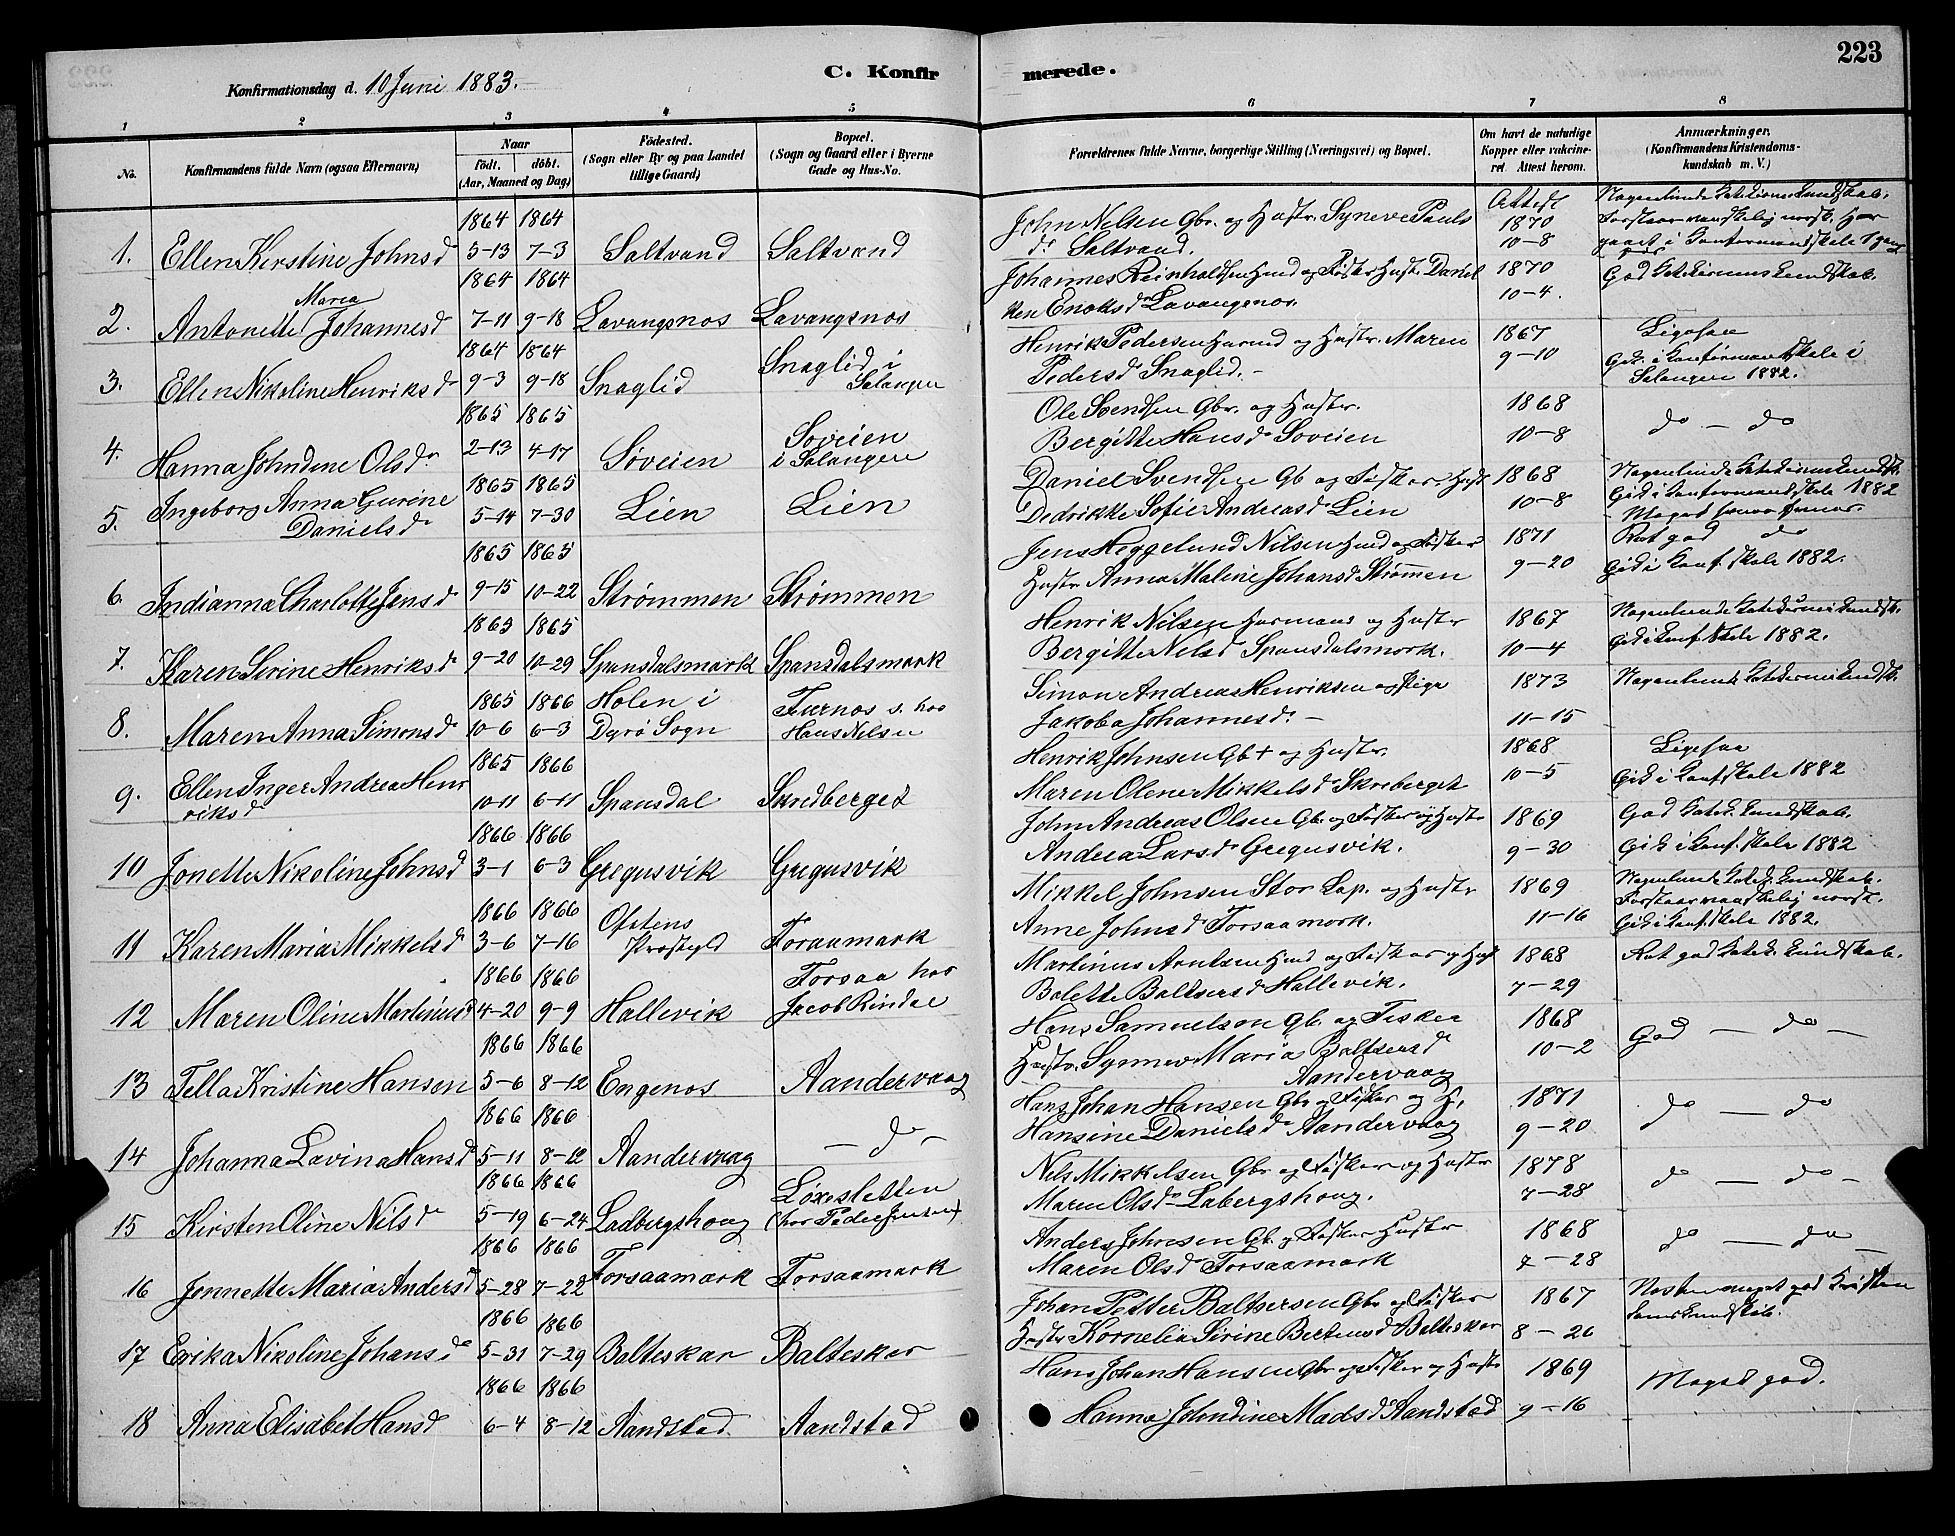 223
C. Konfirmerede.
Konfirmationsdag d. 10 Juni 1883.
1 2 3 4 5 6 7 8
No.
Konfirmandens fulde Navn (ogsaa Efternavn)
Naar
født. døbt.
(Aar, Maaned og Dag)
Fødested.
(Sogn eller By og paa Landet
tillige Gaard)
Bopæl.
(Sogn og Gaard eller i Byerne
Gade og Hus-No.
Forældrenes fulde Navne, borgerlige Stilling (Næringsvei) og Bopæl.
Om havt de naturlige
Kopper eller vakcine-
ret Attest herom.
Anmærkninger.
(Konfirmandens Kristendoms-
kundskab m. V.)
1864 1864
1. Ellen Kirstine Johnsd 5-13 7-3 Saltvand Saltvand
John Nilsen Gbr. og Hustr. Syneve Pauls
dr Saltvand.
Attest
1870
10-8
Forstaar vanskelig norsk. Har
1864 1864
Maria
2. Antonette Johannesd 7-11 9-18 Lavangsnos Lavangsnos
Johannes Reinholdsen og Fisker Hustr. Daniel
ken Enoksdr Lavangsnos
1870
10-4.
God Katekismuskundskab.
1864 1864
3. Ellen Nikoline Henriksd 9-3 9-18 Snaglid Snaglid i
Salangen
Henrik Pedersen og Hustr. Maren
Pedersd Snaglid.-
1867
9-10
Ligesaa
Gik i Konfirmantskole i
Salangen 1882.
1865 1865
4. Hanna Johndine Olsdr 2-13 4-17 Søveien Soveien
i Salangen
Ole Svendsen Gbr. og Hustr.
Bergitte Hansdr Soveien
1868
10-8
do - do
1865 1865
5. Ingeborg Anna Gurine
Danielsd 5-14 7-30 Lien Lien
Daniel Svendsen Gb og Fisker Hustr
Dedrikke Sofie Andreasdr Lien
1868
10-8
Gik i Konfirmandskole 1882
1865 1865
6. Indianna Charlotte Jensd 9-15 10-22 Strømmen Strømmen
Jens Heggelund Nilsen og Fisker
Hustr Anna Maline Johansdr Strømmen
1871
9-20
Ret god do
Gik i Konf. skole 1882.
1865 1865
7. Karen Sirine Henriksd 9-20 10-29 Spansdalsmark Spansdalsmark
Henrik Nilsen og Hustr
Bergitte Nilsd Spansdalsmark.
1867
10-4
Gik i Konf. Skole 1882.
1865 1866
8. Maren Anna Simonsd 10-6 6-3 Holen i
Dyrø Sogn
Furnos s. hos
Hans Nilsen
Simon Andreas Henriksen og Pige
Jakoba Johannesd. -
1873
11-15
1865 1866
9. Ellen Inger Andrea Hen
riksd 10-11 6-11 Spansdal Skredberget
Henrik Johnsen Gb + og Hustr.
Maren Olene Mikkelsd Skreberget
1868
10-5
Ligesaa
Gik i Konf. skole 1882
1866 1866
10 Jonette Nikoline Johnsd 3-1 6-3 Gregusvik Gregusvik
John Andreas Olsen Gb. og Fisker og Hustr
Andrea Larsd Gregusvik.
1869
9-30
God Katek. kundskab.
Gik i Konf. skole 1882
1866 1866
11 Karen Maria Mikkelsd 3-6 7-16 Ofotens
Prestgjld
Foraamark
Mikkel Johnsen Stor Lap. og Hustr
Anne Johnsd Forsaamark.
1869
11-16
Forstaar vanskelig norsk.
Gik i Konf. skole 1882.
1866 1866
12 Maren Oline Martinusd 4-20 9-9 Hallevik Forsaa hos
Jacob Rindal
Martinus Arntsen og Fisker og Hust
Balette Baltsersd Hallevik.
1868
7-29
Ret god Katek. kundskab.
1866 1866
13 Tella Kristine Hansen 5-6 8-12 Engenos Aandervaag
Hans Samuelson Gb. og Fisker
Hustr. Synnev Maria Baltsersd
Aandervaag
1868
10-2
God - do -
1866 1866
14 Johanna Lavina Hansd 5-11 8-12 Aandervaag - do -
Hans Johan Hansen Gbr og Fisker og H.
Hansine Danielsd Aandervaag
1871
9-20
do - do
1866 1866
15 Kirsten Oline Nilsd 5-19 6-24 Ladbergshoug Løxesletten
(hos Peder Jensen)
Nils Mikkelsen Gbr og Fisker og Hustr
Maren Olsdr Labergshoug.
1878
7-28
do - do -
1866 1866
16 Jonnette Maria Andersd 5-28 7-22 Forsaamark Forsaamark
Anders Johnsen Gb. og Fisker Hustr
Maren Olsd Forsaamark
1868
7-28
do - do -
1866 1866
17 Erika Nikoline Johansd 5-31 7-29 Balteskar Balteskar
Johan Petter Baltsersen Gbr og Fisker
Hustr Kornelia Sirine Bertensd Balteskar
1867
8-26
Nesten meget god Kristen
domskundskab.
1866 1866
18 Anna Elisabet Hansd 6-4 8-12 Aandstad Aandstad
Hans Johan Hansen Gbr og Fisker og Hustr
Hanna Johndine Madsdr Aandstad
1869
9-16
Meget god.